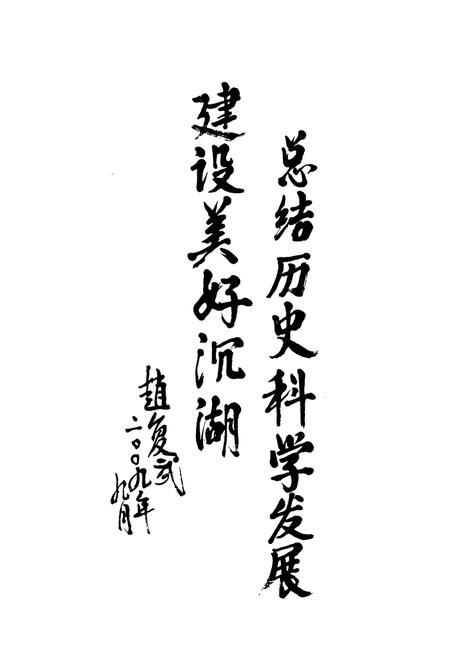 总结历史科学发展
建设美好沉湖
赵复武
二〇〇九年
九月